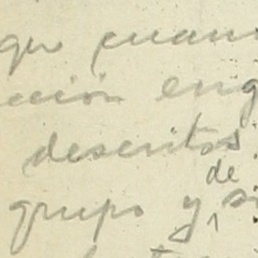 que cuan
cción eng
descritos
grupo y de si